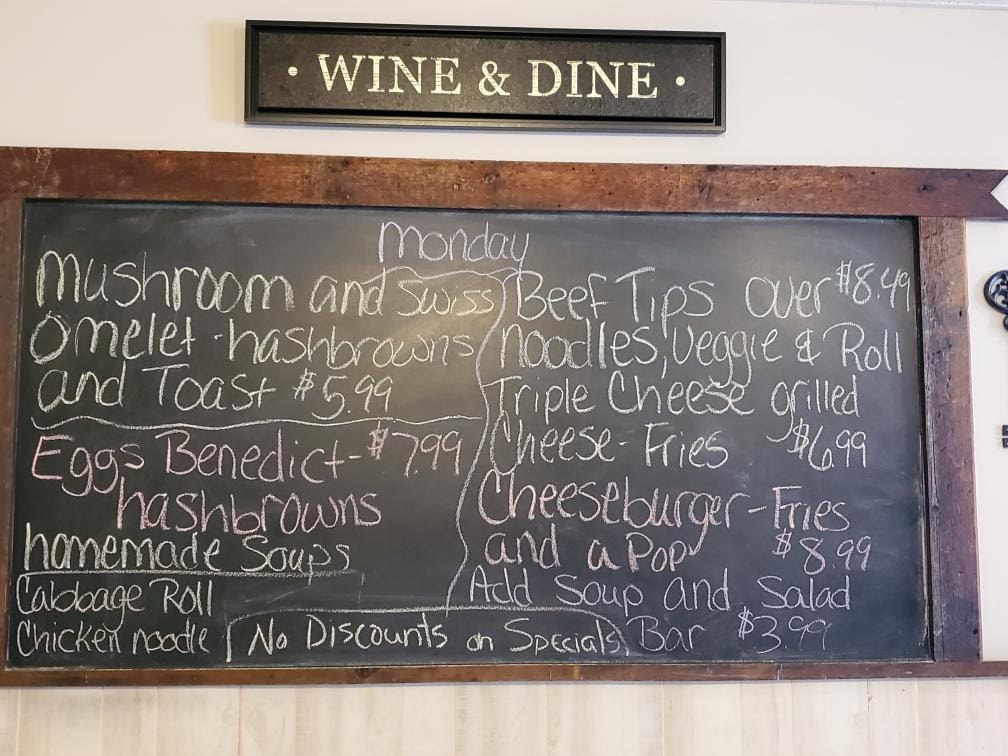 · WINE & DINE ·
Monday
Mushroom and Swiss
Omelet - hashbrowns
and Toast $5.99
Eggs Benedict - $7.99
hashbrowns
homemade Soups
Cabbage Roll
Chicken noodle
Beef Tips over $8.49
Noodles, Veggie & Roll
Triple Cheese grilled
Cheese - Fries $6.99
Cheeseburger - Fries
and a Pop $8.99
Add Soup and Salad
Bar $3.99
No Discounts on Specials